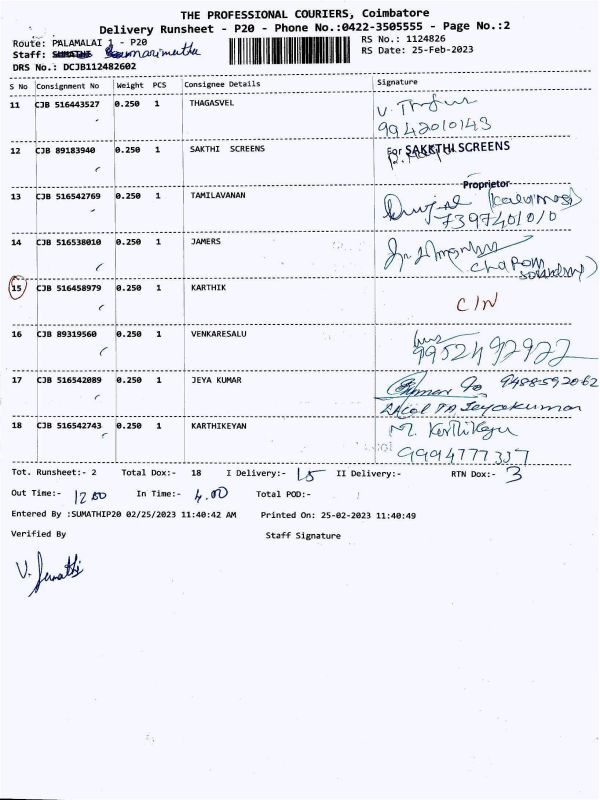 THE PROFESSIONAL COURIERS, Coimbatore
Delivery Runsheet - P20 - Phone No.:0422-3505555 - Page No.:2
Route: PALAMALAI 1 - P20
RS No.: 1124826
Staff: SUMATHI
RS Date: 25-Feb-2023
DRS No.: DCJB112482602
S No Consignment No Weight PCS Consignee Details Signature
11 CJB 516443527 0.250 1 THAGASVEL
9942010143
12 CJB 89183940 0.250 1 SAKTHI SCREENS For SAKKTHI SCREENS
Proprietor
13 CJB 516542769 0.250 1 TAMILAVANAN
7397401010
14 CJB 516538010 0.250 1 JAMERS
15 CJB 516458979 0.250 1 KARTHIK C/N
16 CJB 89319560 0.250 1 VENKARESALU
9952492922
17 CJB 516542089 0.250 1 JEYA KUMAR 9488592062
Jeyakumar
18 CJB 516542743 0.250 1 KARTHIKEYAN M. Karthikeyn
9994777337
Tot. Runsheet:- 2 Total Dox:- 18 I Delivery:- 15 II Delivery:- RTN Dox:- 3
Out Time:- 12 00 In Time:- 4.00 Total POD:-
Entered By :SUMATHIP20 02/25/2023 11:40:42 AM Printed On: 25-02-2023 11:40:49
Verified By Staff Signature
V. Sumathi